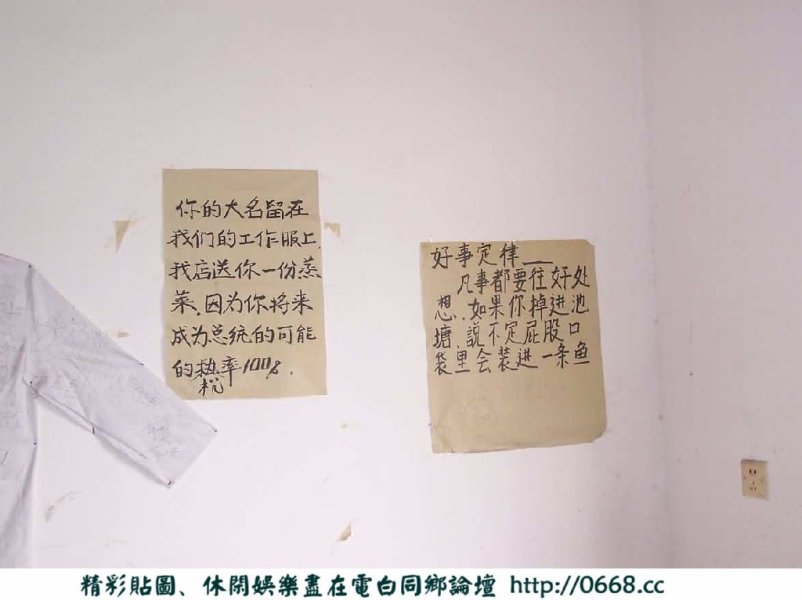 你的大名留在
我们的工作服上.
我店送你一份蒸
菜.因为你将来
成为总统的可能
的概率100%.
好事定律——
凡事都要往好处
想,如果你掉进池
塘,说不定屁股口
袋里会装进一条鱼
精彩貼圖、休閑娛樂盡在電白同鄉論壇 http://0668.cc